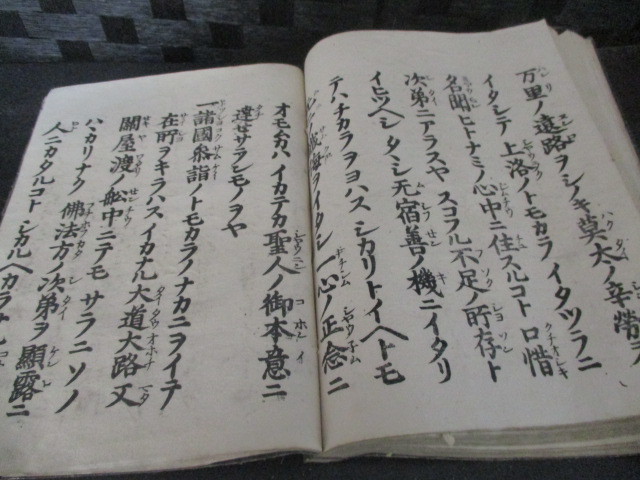 万里ノ遠路ヲシノキ莫大ノ辛勞ヲ
イタシテ上洛ノトモカライタツラニ
名聞ヒトナミノ心中ニ住スルコト口惜
次第ニアラスヤスコフル不足ノ所存ト
イヒツヘシタヽシ无宿善ノ機ニイタリ
テハチカラヲヨハスシカリトイヘトモ
悔ヲイタシ一心ノ正念ニ
オモムカハイカテカ聖人ノ御本意ニ
達セサランモノヲヤ
一諸國參詣ノトモカラノナカニヲイテ
在所ヲキラハスイカナル大道大路又
關屋渡ノ船中ニテモサラニソノ
ハヽカリナク佛法方ノ次第ヲ顯露ニ
人ニカタルコトシカルヘカラサル